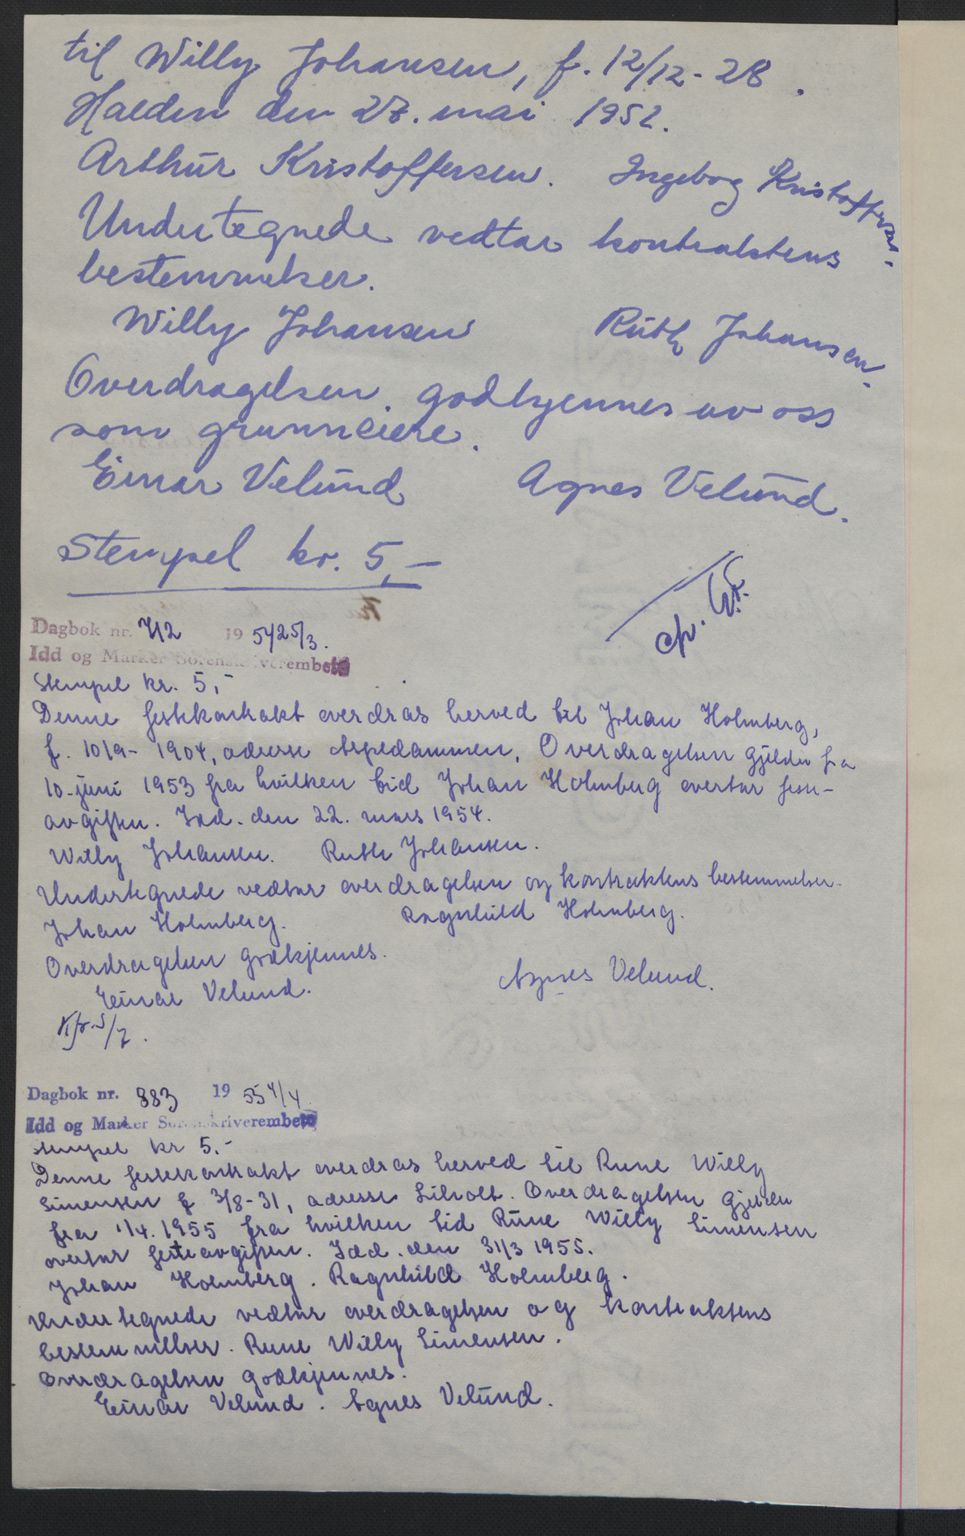 til Willy Johansen, f. 12/12-28.
Halden den 27. mai 1952.
Arthur Kristoffersen. Ingebog Kristoffersen.
Undertegnede vedtar kontraktens
bestemmelser.
Willy Johansen Ruth Johansen.
Overdragelsen godkjennes av oss
som grunneiere.
Einar Velund Agnes Velund.
Stempel kr. 5,-
Dagbok nr. 712 1954 25/3.
Idd og Marker Sorenskriverembete
Stempel kr. 5,-
Denne festekontrakt overdras herved til Johan Holmberg,
f. 10/9-1904, adresse Aspedammen. Overdragelsen gjelder fra
10-juni 1953 fra hvilken tid Johan Holmberg overtar feste-
avgiften. Idd. den 22. mars 1954.
Willy Johansen. Ruth Johansen.
Undertegnede vedtar overdragelsen og kontraktens bestemmelser.
Johan Holmberg. Ragnhild Holmberg.
Overdragelsen godkjennes.
Einar Velund. Agnes Velund.
Dagbok nr. 883 1955 4/4
Idd og Marker Sorenskriverembete
Stempel kr 5.-
Denne festekontrakt overdras herved til Rune Willy
Simensen f 3/8-31, adresse Liholt. Overdragelsen gjelder
fra 1/4.1955 fra hvilken tid Rune Willy Simensen
overtar festeavgiften. Idd. den 31/3 1955.
Johan Holmberg. Ragnhild Holmberg.
Undertegnede vedtar overdragelsen og kontraktens
bestemmelser. Rune Willy Simensen.
Overdragelsen godkjennes.
Einar Velund. Agnes Velund.